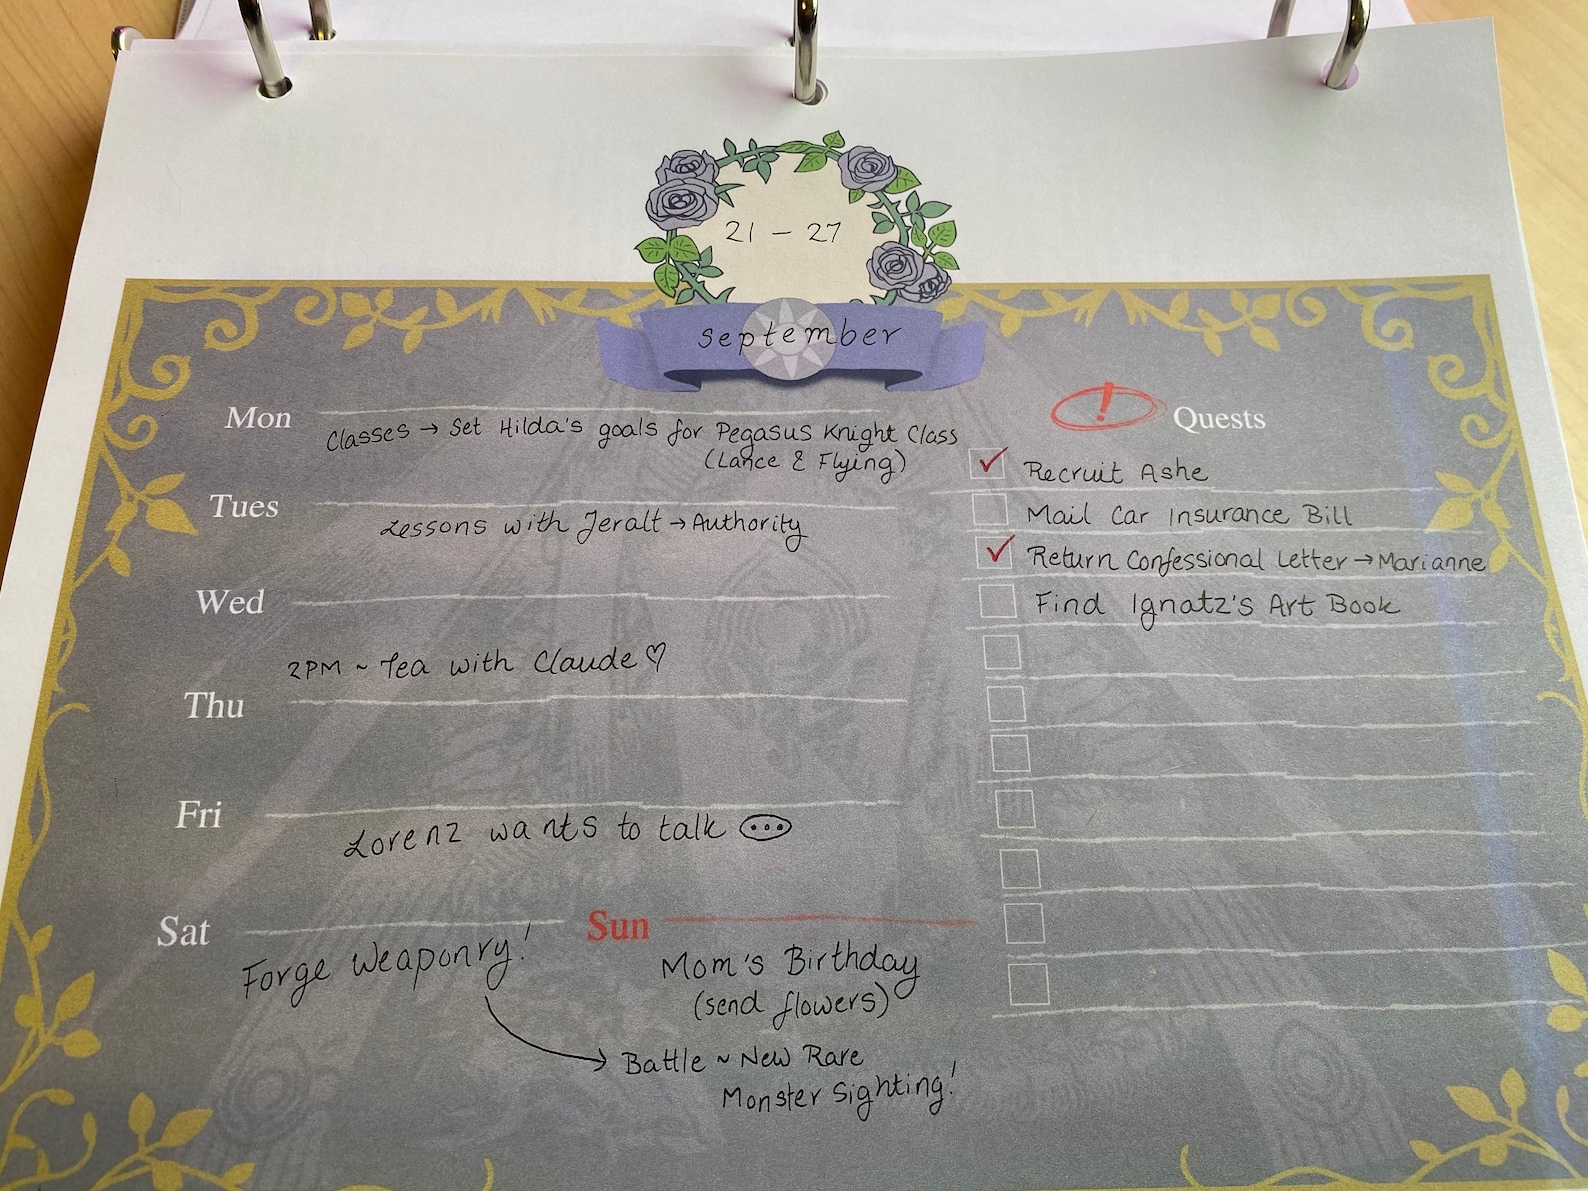 21 - 27
september
Mon
Classes → Set Hilda's goals for Pegasus Knight Class
(Lance & Flying)
Tues
Lessons with Jeralt → Authority
Wed
2PM ~ Tea with Claude ♡
Thu
Fri
Lorenz wants to talk 💬
Sat
Forge Weaponry!
Sun
Mom's Birthday
(send flowers)
→ Battle ~ New Rare
Monster Sighting!
! Quests
✓ Recruit Ashe
Mail Car Insurance Bill
✓ Return Confessional Letter → Marianne
Find Ignatz's Art Book